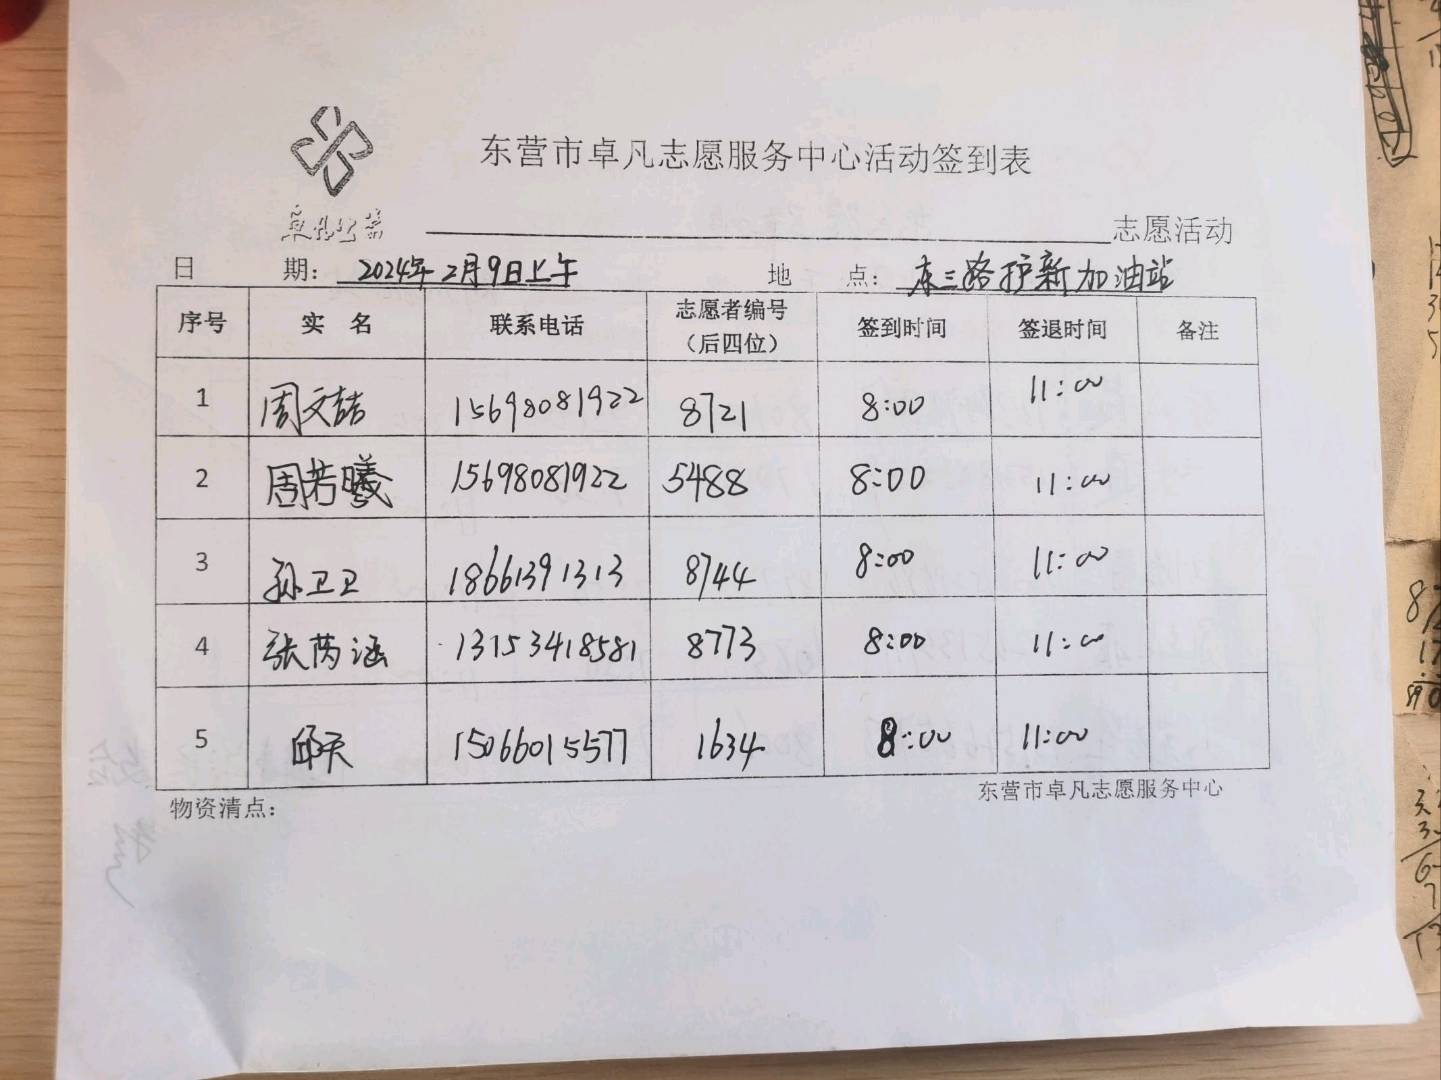 东营市卓凡志愿服务中心活动签到表
卓凡公益
志愿活动
日 期：2024年2月9日上午 地 点：东三路护新加油站
序号 实 名 联系电话 志愿者编号（后四位） 签到时间 签退时间 备注
1 周文喆 15698081922 8721 8:00 11:00
2 周芳曦 15698081922 5488 8:00 11:00
3 孙卫卫 18661391313 8744 8:00 11:00
4 张芮涵 13153418581 8773 8:00 11:00
5 邱天 15066015577 1634 8:00 11:00
物资清点： 东营市卓凡志愿服务中心